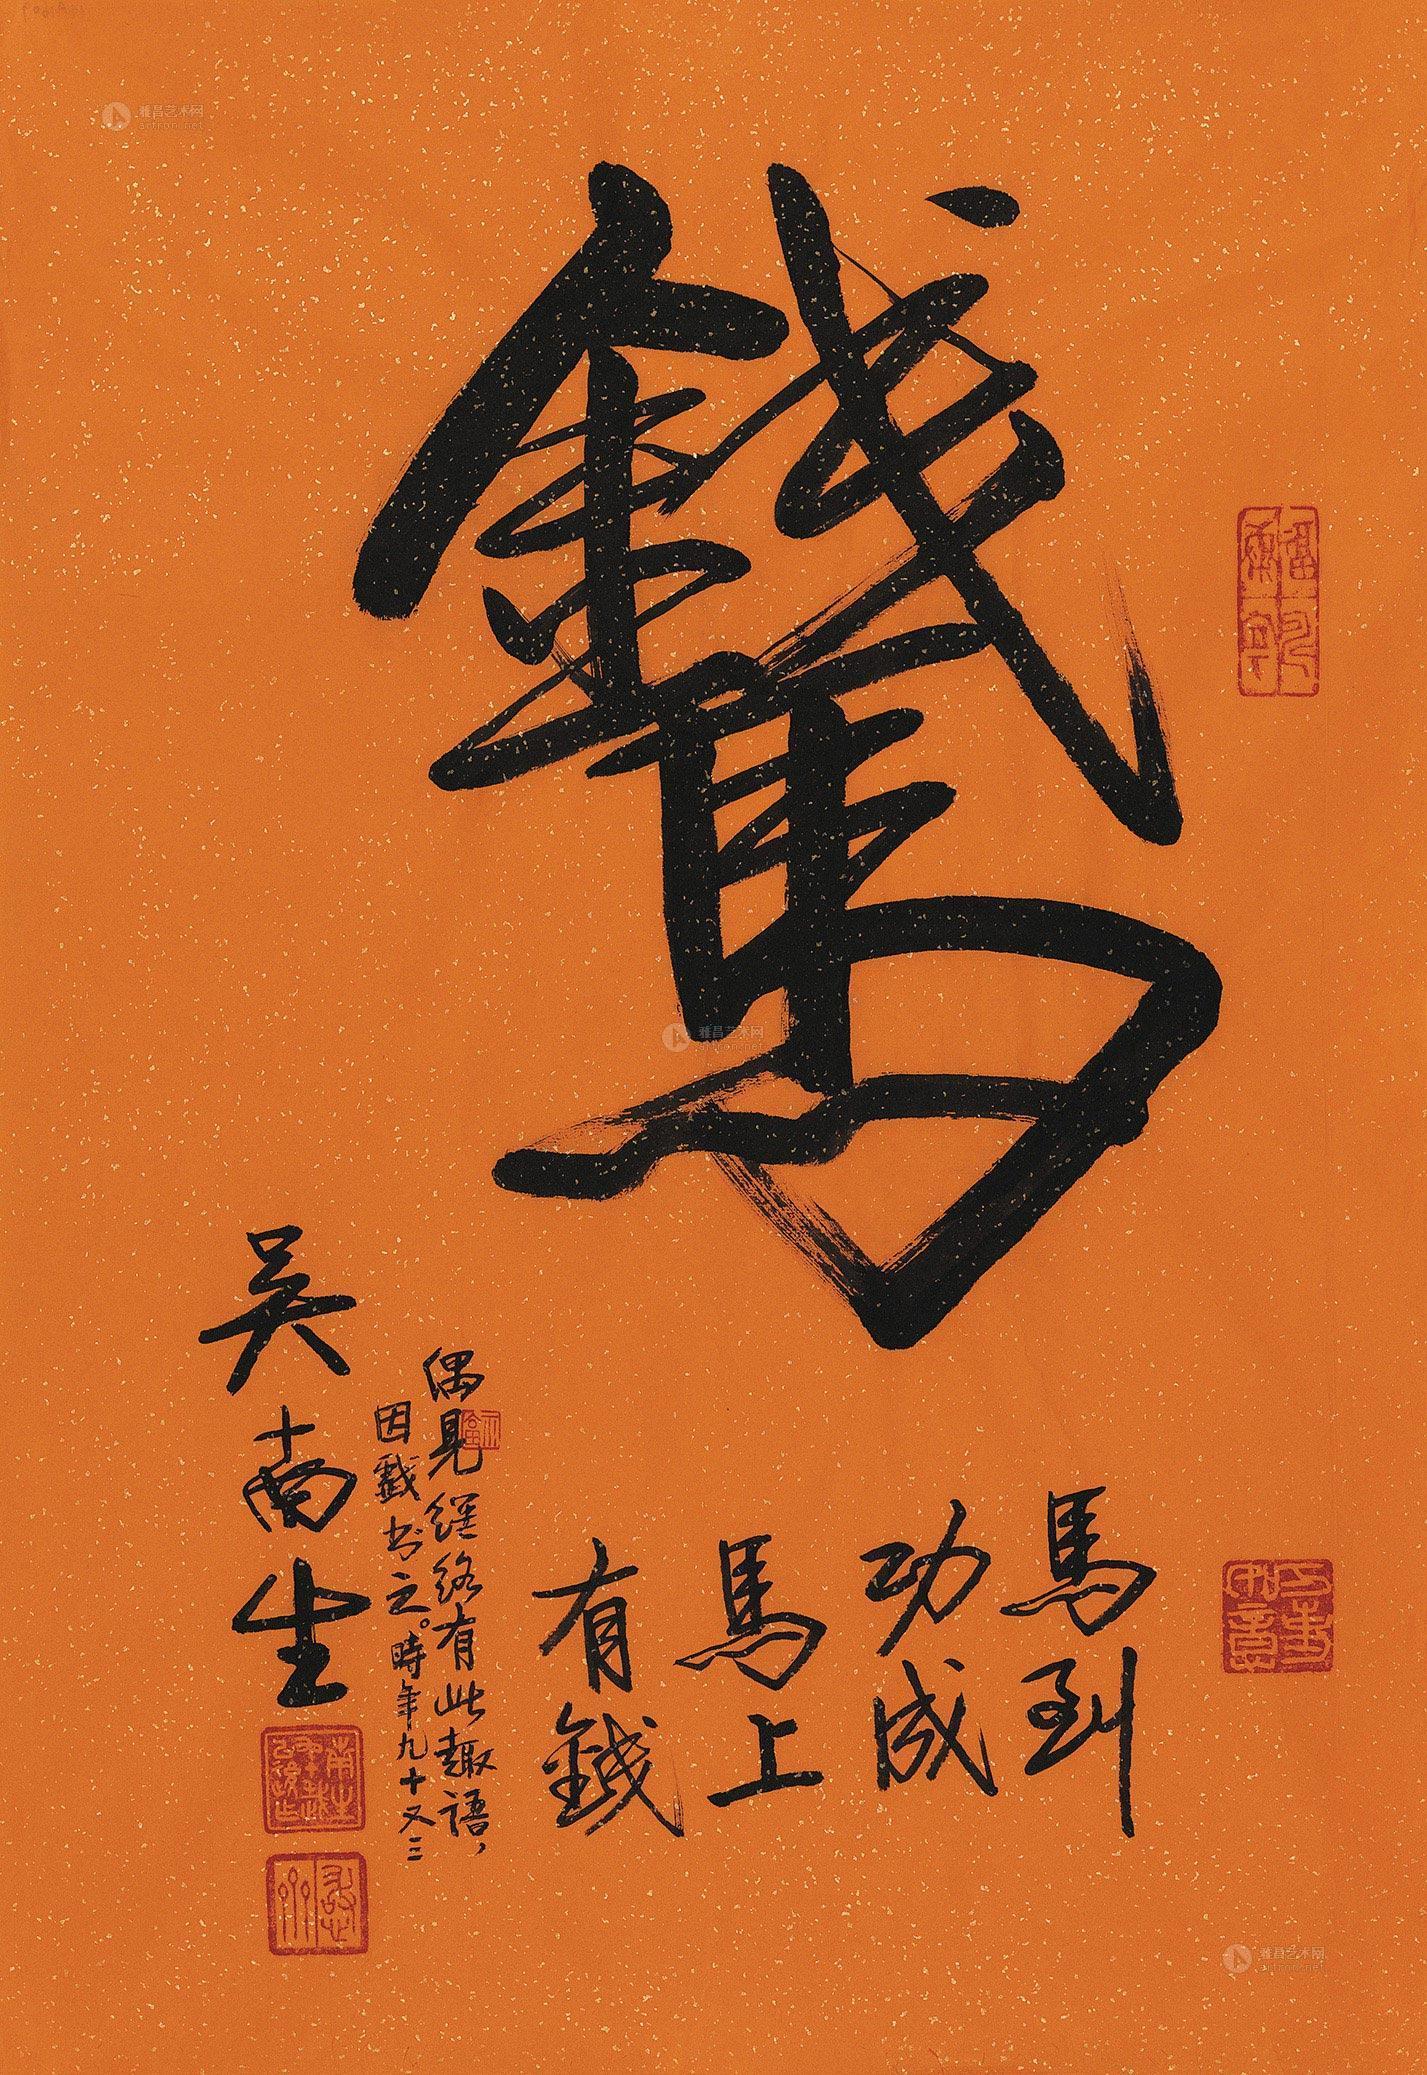 錢馬
馬到
功成
馬上
有錢
偶見經絡有此趣語，
因戲书之。時年九十又三
吴南生
雅昌艺术网
artron.net
雅昌艺术网
artron.net
雅昌艺术网
artron.net